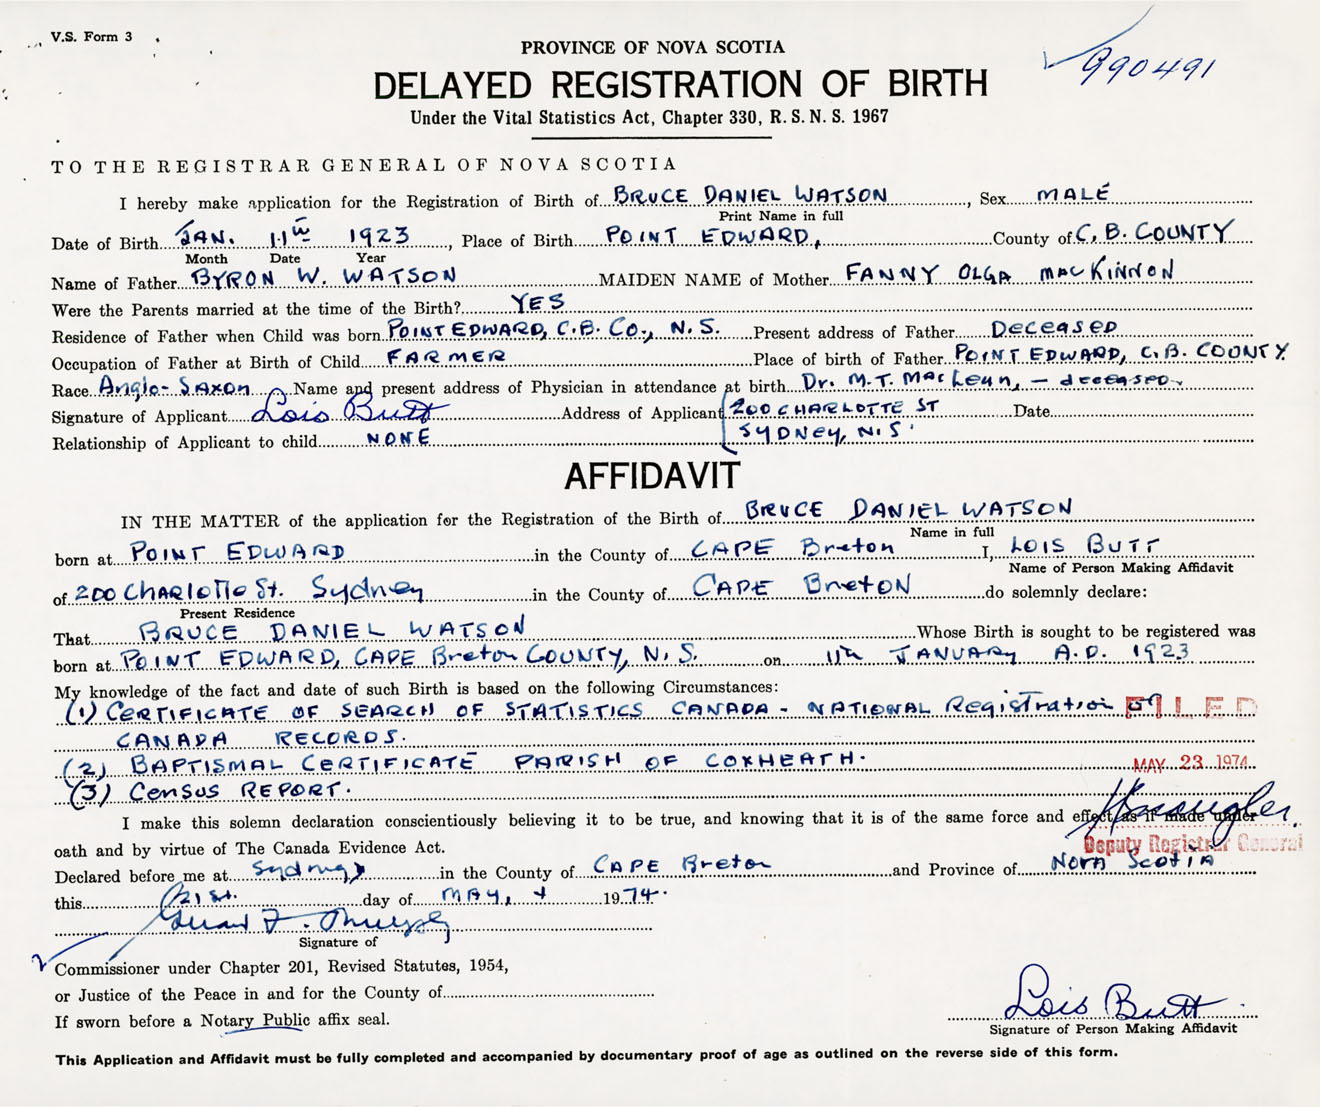 V.S. Form 3
990491
PROVINCE OF NOVA SCOTIA
DELAYED REGISTRATION OF BIRTH
Under the Vital Statistics Act, Chapter 330, R. S. N. S. 1967
TO THE REGISTRAR GENERAL OF NOVA SCOTIA
I hereby make application for the Registration of Birth of BRUCE DANIEL WATSON, Sex MALE
Print Name in full
Date of Birth JAN. 11th 1923, Place of Birth POINT EDWARD, County of C. B. COUNTY
Month Date Year
Name of Father BYRON W. WATSON MAIDEN NAME of Mother FANNY OLGA MACKINNON
Were the Parents married at the time of the Birth? YES
Residence of Father when Child was born POINT EDWARD, C.B. Co., N.S. Present address of Father DECEASED
Occupation of Father at Birth of Child FARMER Place of birth of Father POINT EDWARD, C.B. COUNTY
Race Anglo-Saxon Name and present address of Physician in attendance at birth Dr. M.T. MacLean, - deceased
Signature of Applicant Lois Butt Address of Applicant 200 CHARLOTTE ST Date
Relationship of Applicant to child NONE SYDNEY, N.S.
AFFIDAVIT
IN THE MATTER of the application for the Registration of the Birth of BRUCE DANIEL WATSON
Name in full
born at POINT EDWARD in the County of CAPE Breton I, LOIS BUTT
Name of Person Making Affidavit
of 200 Charlotte St. Sydney in the County of CAPE BRETON do solemnly declare:
Present Residence
That BRUCE DANIEL WATSON Whose Birth is sought to be registered was
born at POINT EDWARD, CAPE Breton COUNTY, N.S. on 11th JANUARY A.D. 1923
My knowledge of the fact and date of such Birth is based on the following Circumstances:
(1) CERTIFICATE OF SEARCH OF STATISTICS CANADA - NATIONAL Registration of FILED
CANADA RECORDS.
(2) BAPTISMAL CERTIFICATE PARISH OF COXHEATH. MAY 23 1974
(3) Census REPORT.
I make this solemn declaration conscientiously believing it to be true, and knowing that it is of the same force and effect as if made under
oath and by virtue of The Canada Evidence Act. Deputy Registrar General
Declared before me at Sydney in the County of CAPE Breton and Province of NOVA SCOTIA
this 21st. day of MAY, 1974.
Signature of
Commissioner under Chapter 201, Revised Statutes, 1954,
or Justice of the Peace in and for the County of
If sworn before a Notary Public affix seal.
Lois Butt
Signature of Person Making Affidavit
This Application and Affidavit must be fully completed and accompanied by documentary proof of age as outlined on the reverse side of this form.